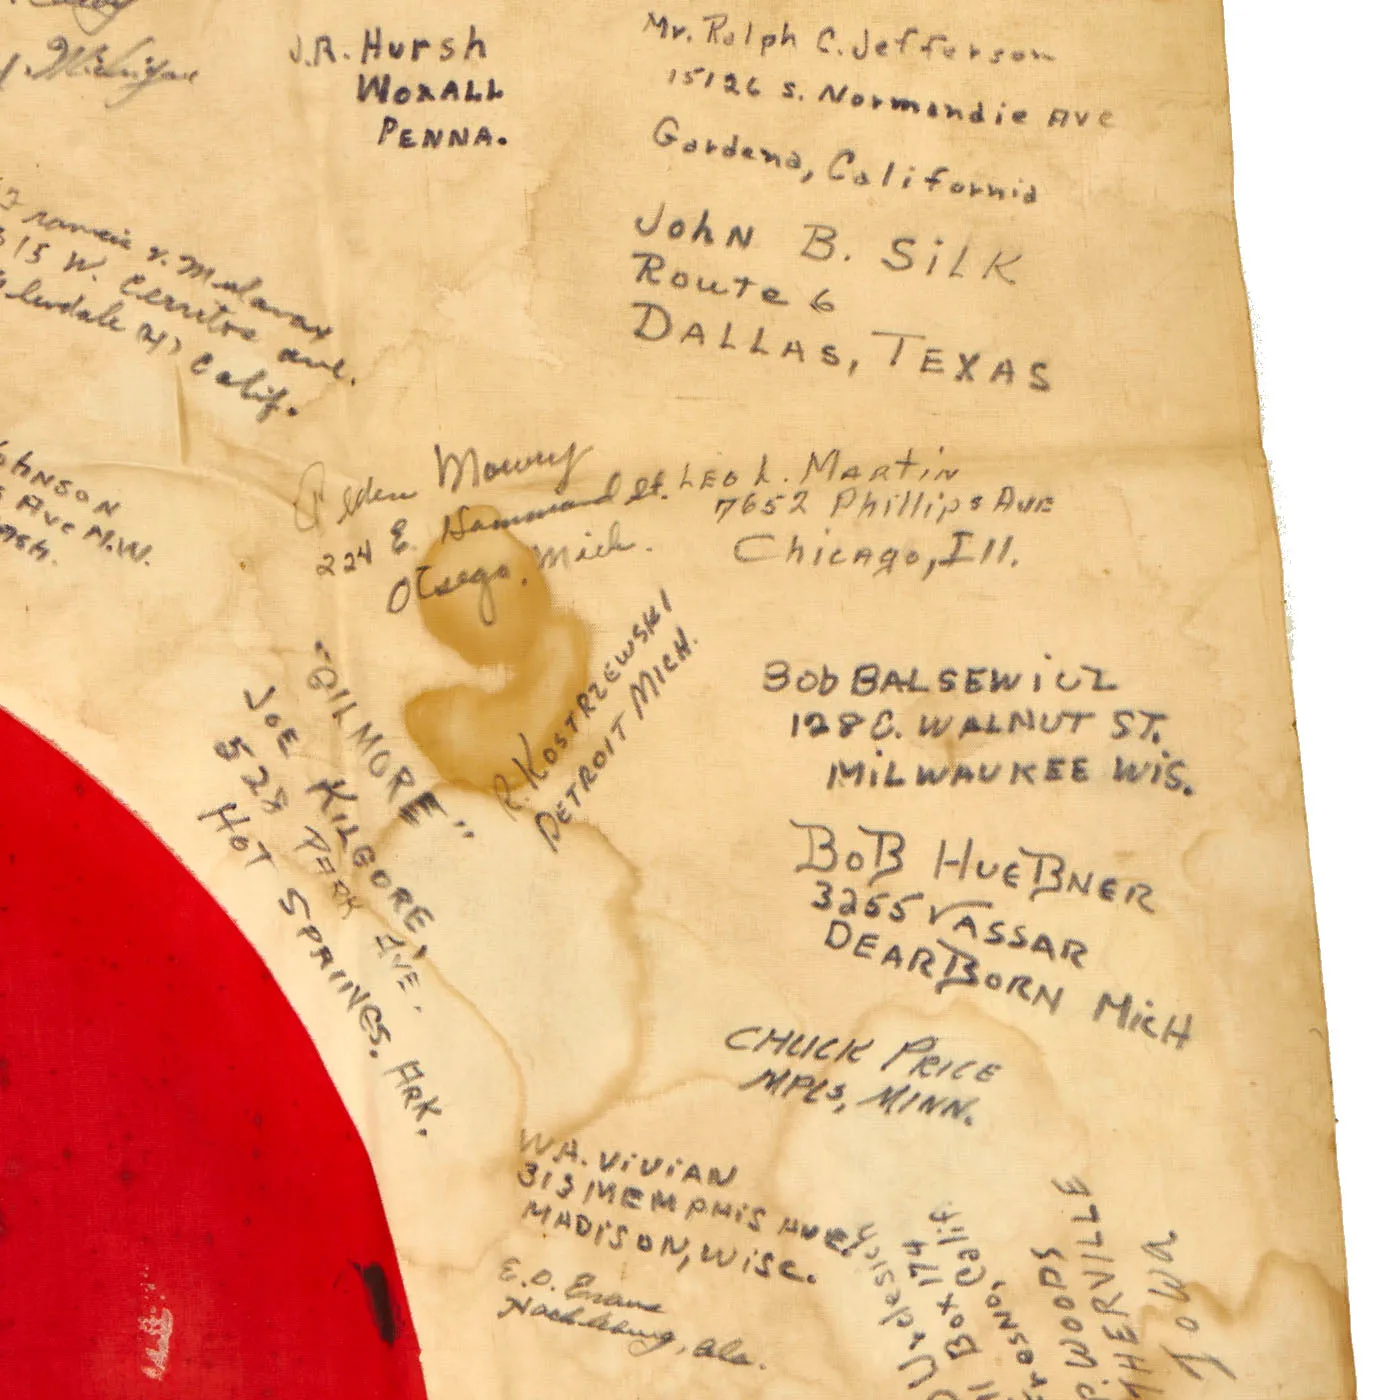 Michigan
J.R. Hursh
WOXALL
PENNA.
Mr. Ralph C. Jefferson
15126 S. Normandie Ave
Gardena, California
John B. Silk
Route 6
DALLAS, TEXAS
Francis v.
315 W. Cerritos ave.
Glendale 4, Calif.
OHNSON
Ave N.W.
Alden Mowry
224 E. Hammond St.
Otsego, Mich.
LEO L. MARTIN
7652 Phillips Ave
Chicago, Ill.
"GILMORE"
JOE KILGORE,
528 PARK AVE.
HOT SPRINGS, ARK.
R. KOSTRZEWSKI
DETROIT MICH.
BOb BALSEWiCZ
128 E. WALNUT ST.
MiLWAUKEE WiS.
BoB HueBNER
3255 VASSAR
DEARBORN MicH
CHUCK PRICE
MPLS, MINN.
W.A. ViViAN
313 MEMPHIS AVE,
MADISON, WiSC.
E.D. Evans
Ala.
Box 174
Fresno, Calif
WOODS
THERVILLE
Iowa